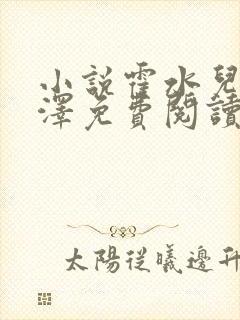 小說霍水兒
澤免費閱讀
太陽從曦邊升